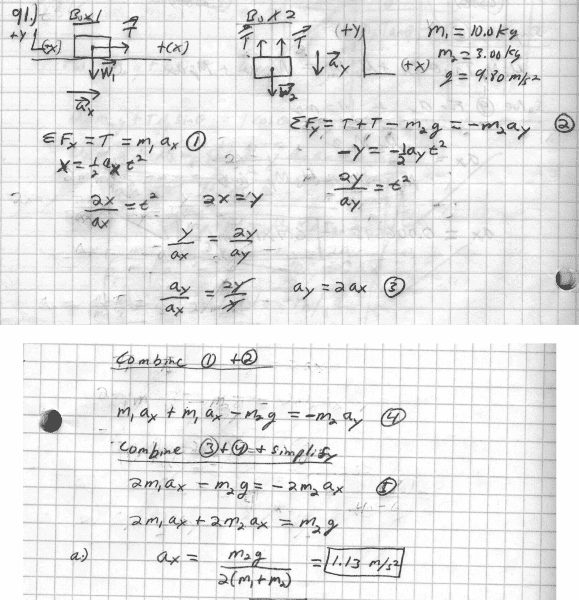 91.)
Box 1
Box 2
+y
(+x)
T
+(x)
W₁
aₓ
T T
(+y)
a_y
(+x)
W₂
m₁ = 10.0 kg
m₂ = 3.00 kg
g = 9.80 m/s²
ΣFₓ = T = m₁aₓ ①
x = ½aₓt²
2x/aₓ = t²
ΣF_y = T + T - m₂g = -m₂a_y ②
-y = -½a_yt²
2y/a_y = t²
2x = y
y/aₓ = 2y/a_y
a_y/aₓ = 2y/y
a_y = 2aₓ ③
Combine ① + ②
m₁aₓ + m₁aₓ - m₂g = -m₂a_y ④
Combine ③ + ④ + simplify
2m₁aₓ - m₂g = -2m₂aₓ ⑤
2m₁aₓ + 2m₂aₓ = m₂g
a.) aₓ = m₂g/2(m₁+m₂) = 1.13 m/s²